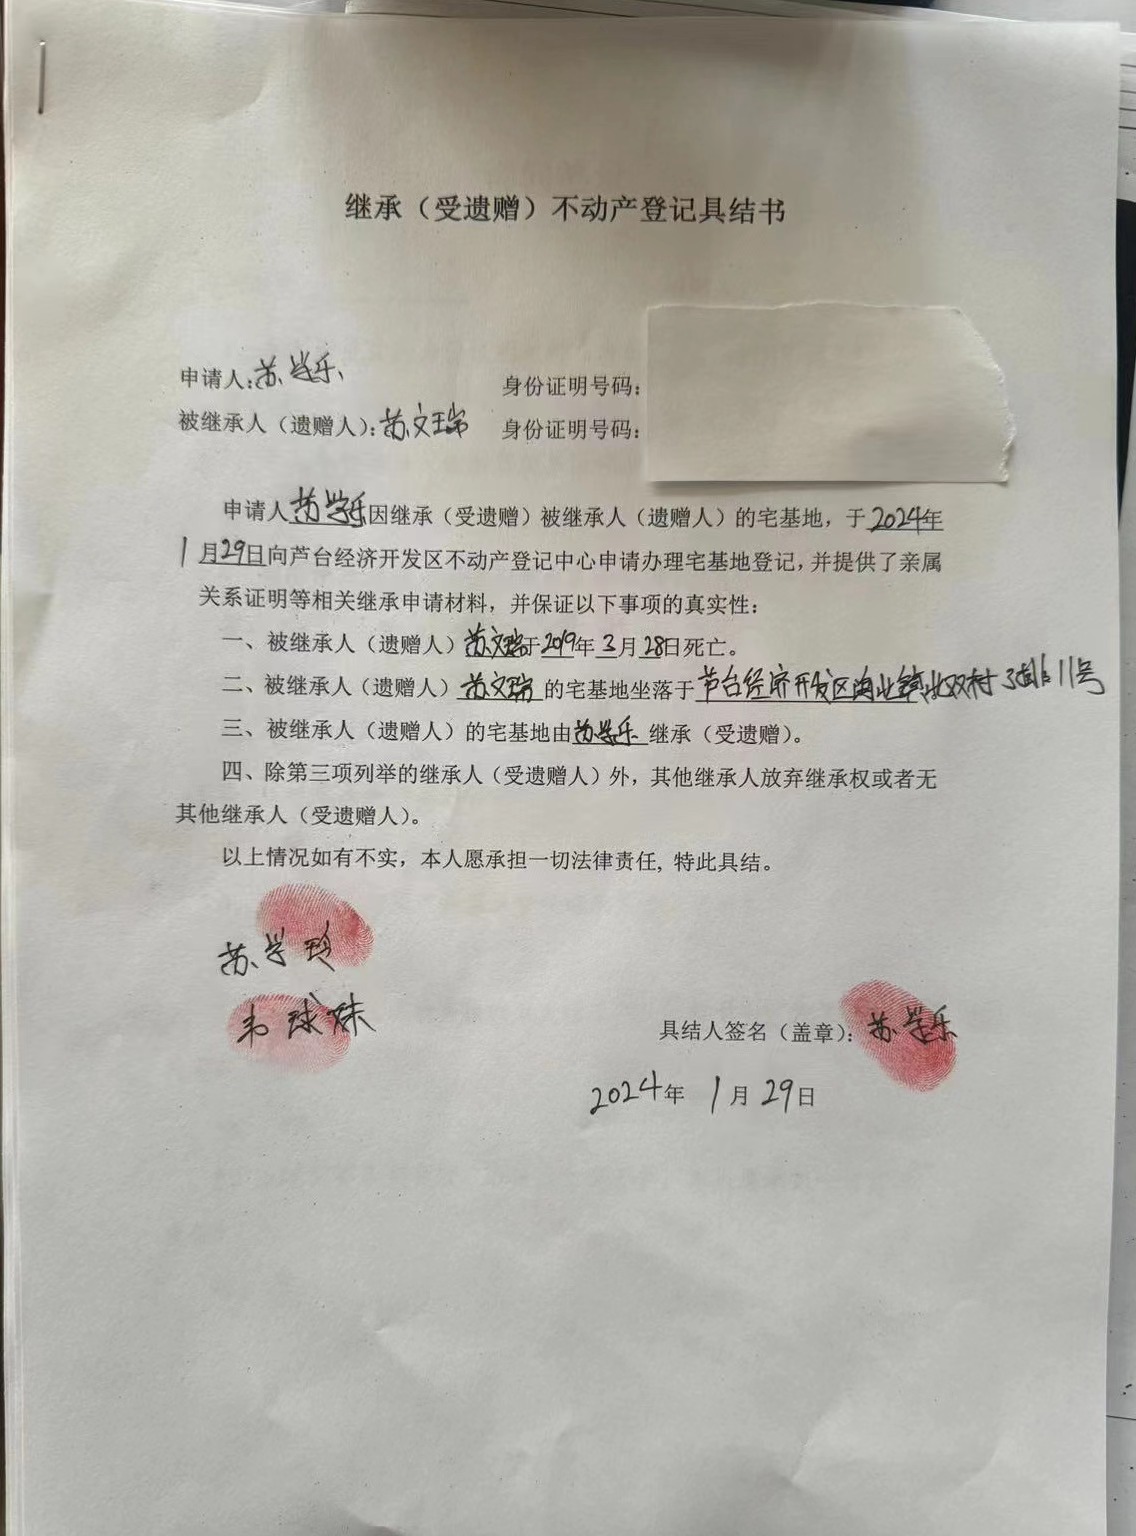 继承（受遗赠）不动产登记具结书
申请人：苏学乐 身份证明号码：
被继承人（遗赠人）：苏文瑞 身份证明号码：
申请人苏学乐因继承（受遗赠）被继承人（遗赠人）的宅基地，于2024年
1月29日向芦台经济开发区不动产登记中心申请办理宅基地登记，并提供了亲属
关系证明等相关继承申请材料，并保证以下事项的真实性：
一、被继承人（遗赠人）苏文瑞于2019年3月28日死亡。
二、被继承人（遗赠人）苏文瑞的宅基地坐落于芦台经济开发区海北镇北双村3排11号
三、被继承人（遗赠人）的宅基地由苏学乐继承（受遗赠）。
四、除第三项列举的继承人（受遗赠人）外，其他继承人放弃继承权或者无
其他继承人（受遗赠人）。
以上情况如有不实，本人愿承担一切法律责任，特此具结。
苏学珍
韦球妹
具结人签名（盖章）：苏学乐
2024年1月29日